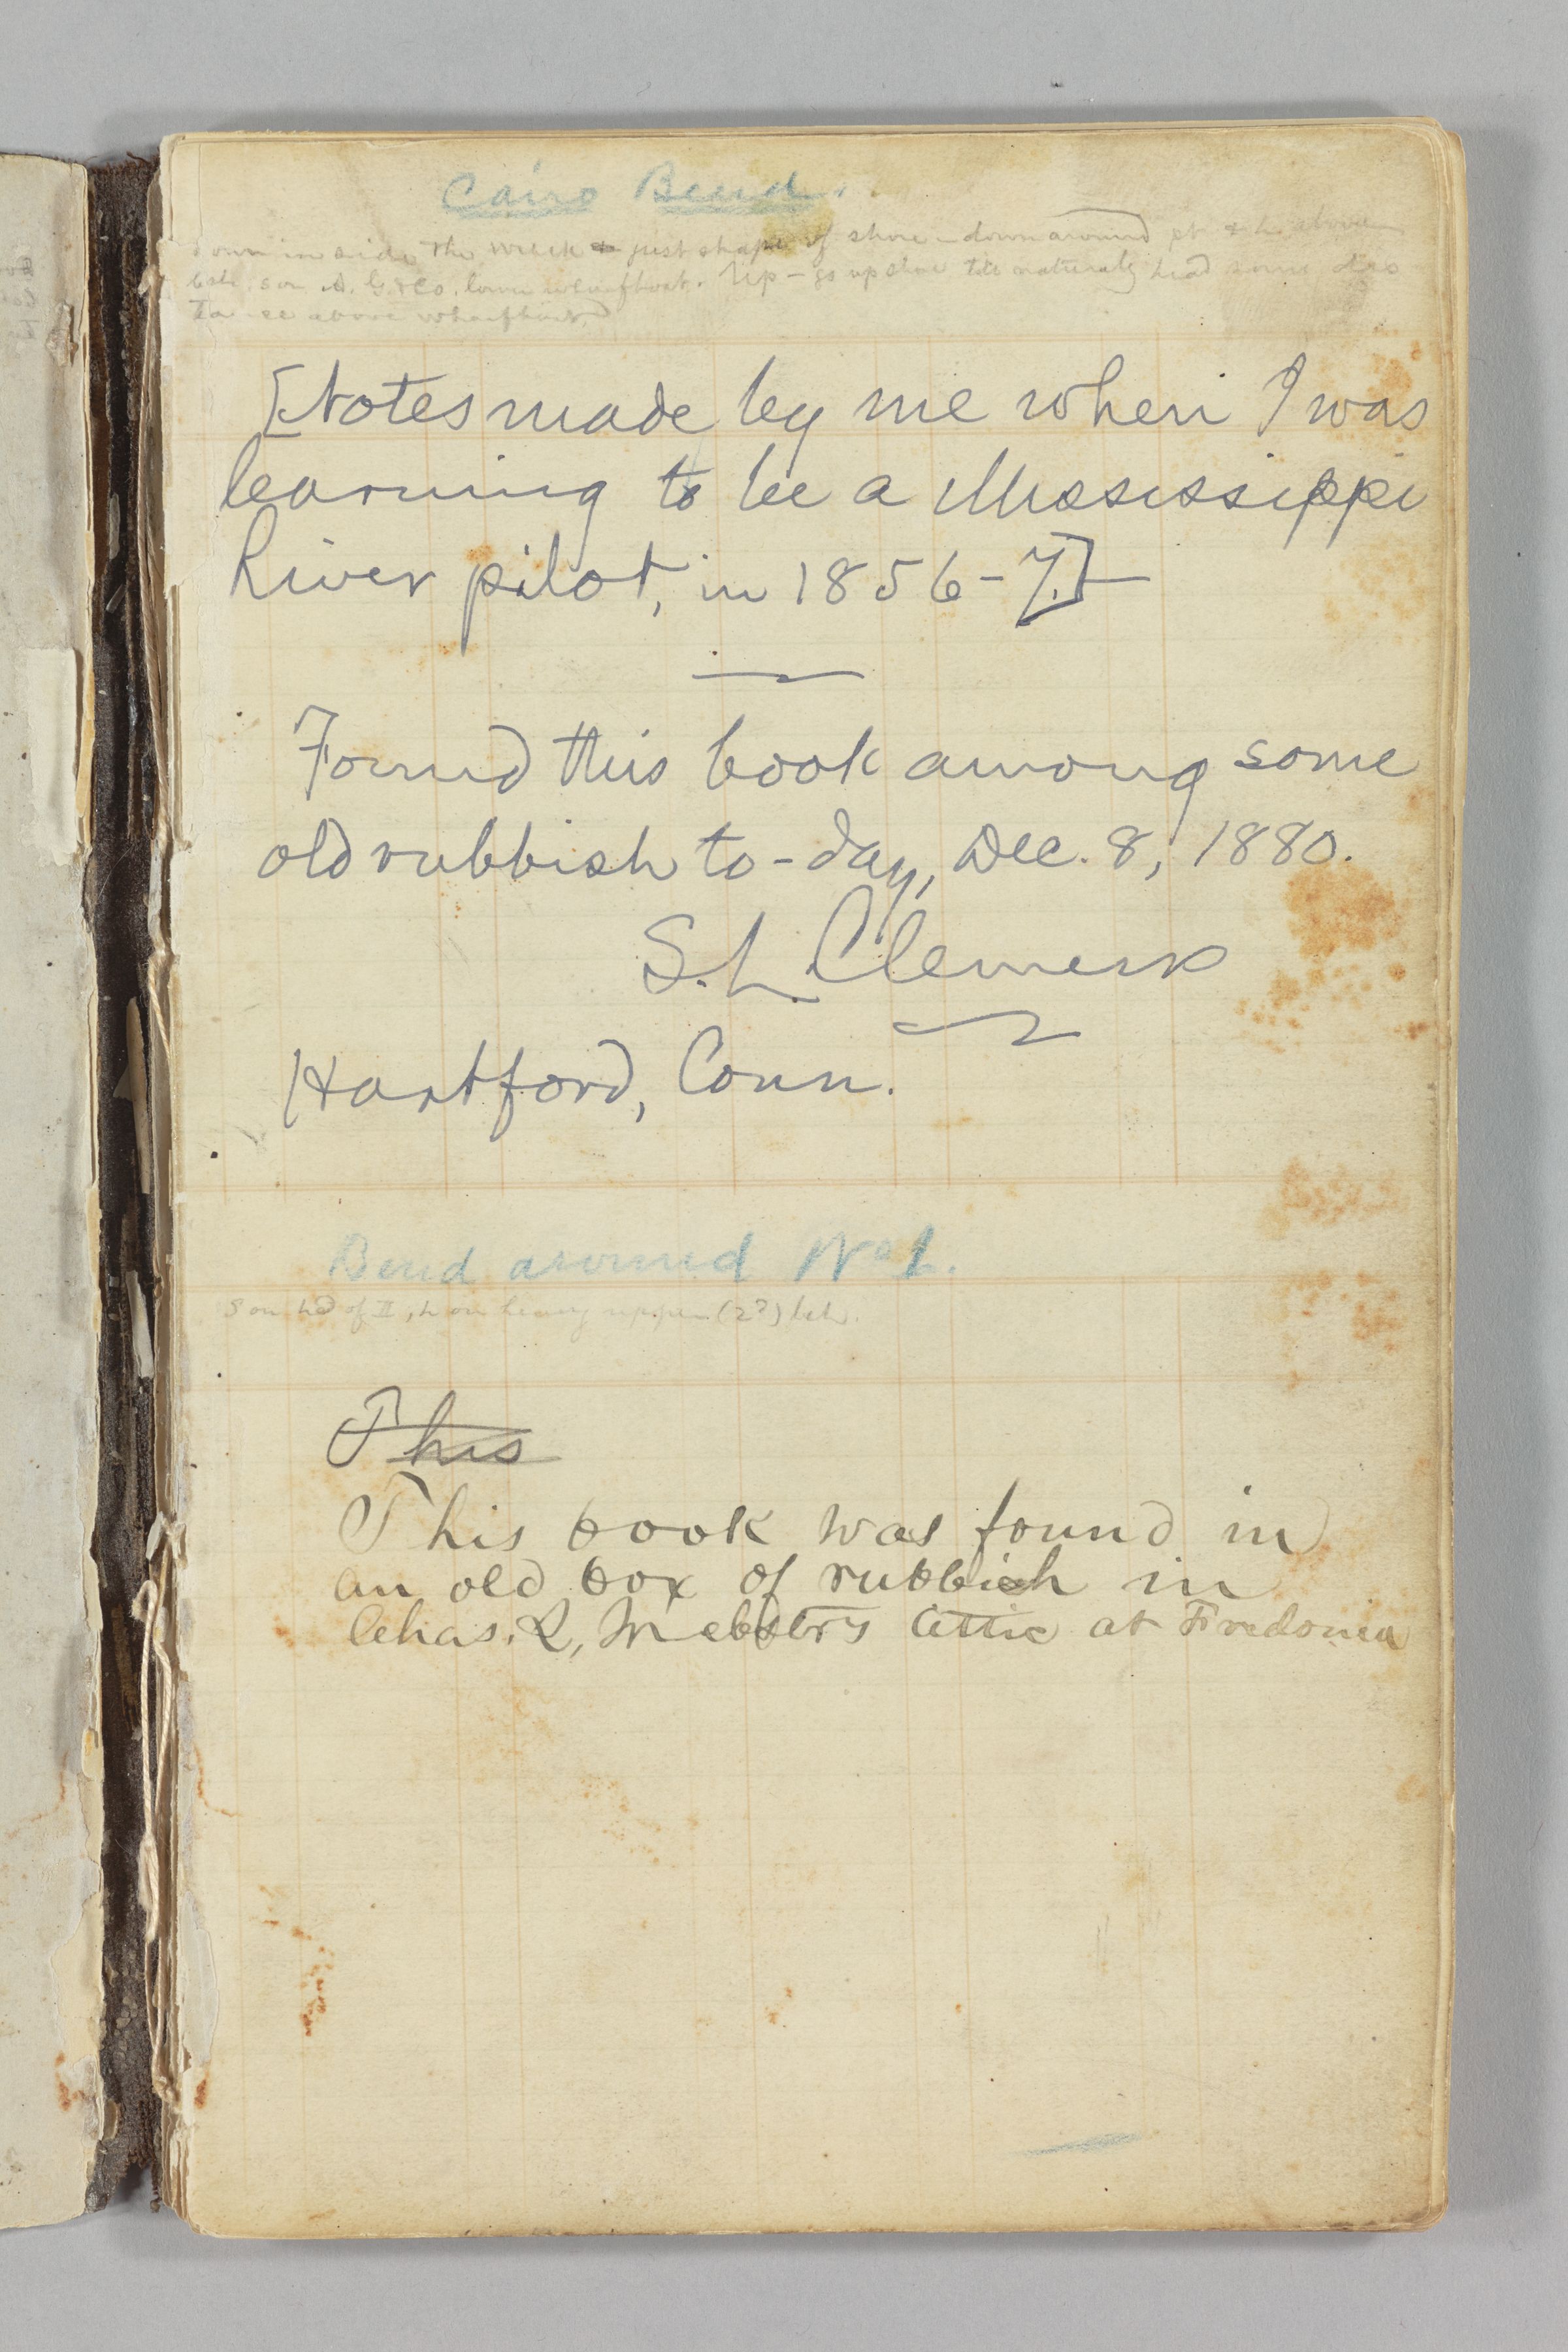 Cairo Bend.
in side the wreck just shape of shore – down around pt above
lower wharfboat. Up – go up shore till naturally head
above wharfboat
[Notes made by me when I was
learning to be a Mississippi
River pilot, in 1856–7.]—
Found this book among some
old rubbish to-day, Dec. 8, 1880.
S. L. Clemens
Hartford, Conn.
Bend around No 1.
S on hd of II, h on heavy upper (2?)
This
This book was found in
an old box of rubbish in
Chas. L, Webster's attic at Fredonia